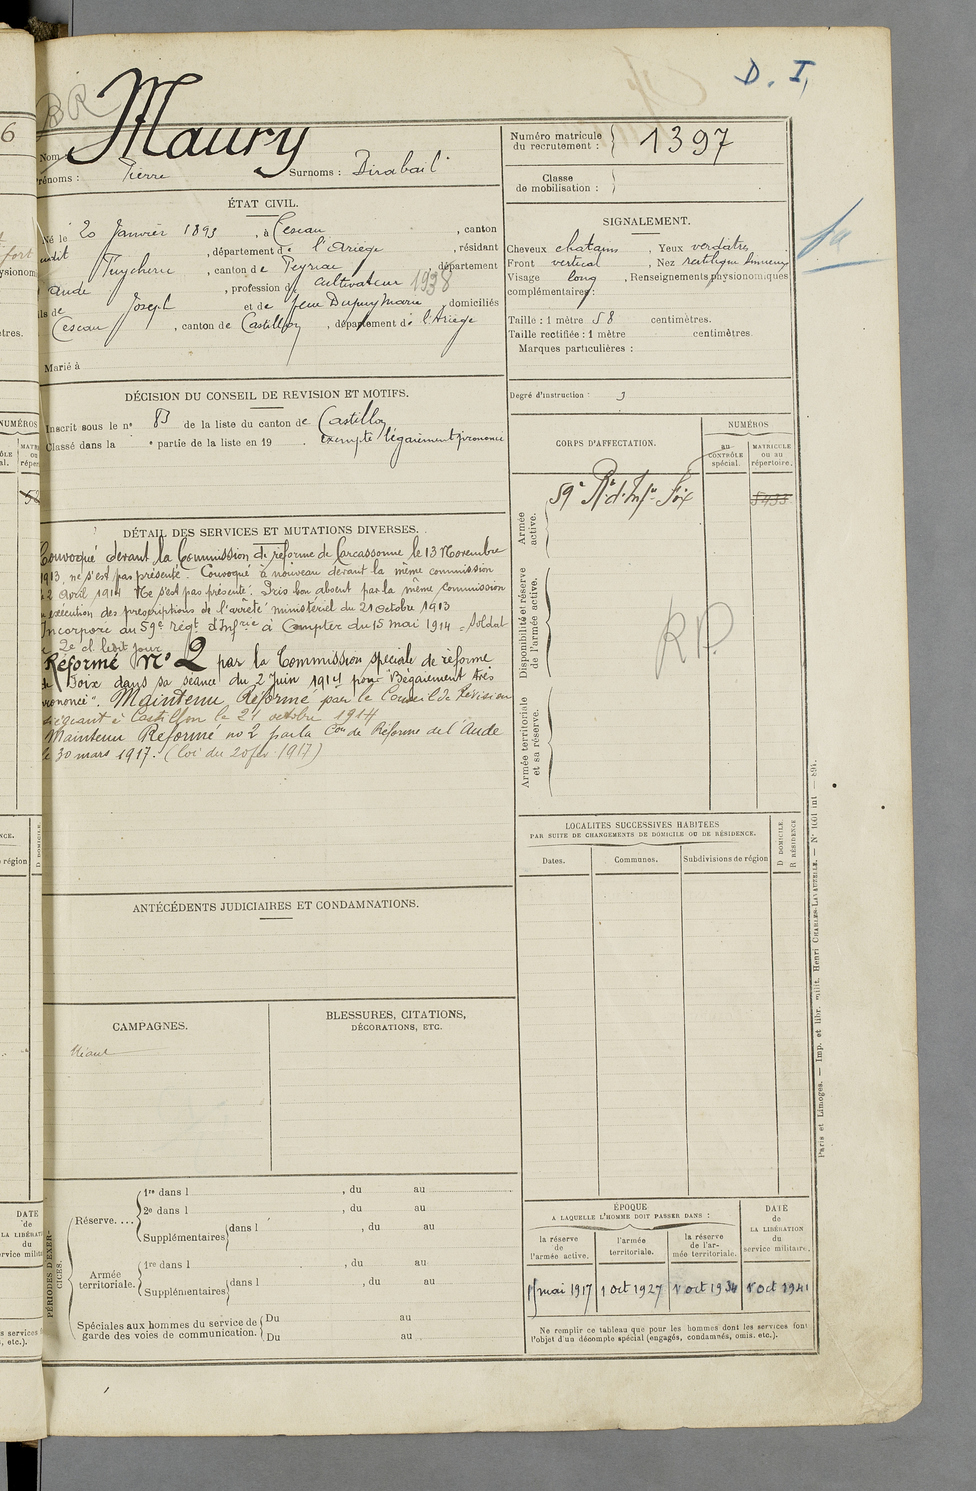 D. I,
BR
Maury
Nom :
Prénoms : Pierre Surnoms : Dirabail
Numéro matricule du recrutement : 1397
Classe de mobilisation :
ÉTAT CIVIL.
Né le 20 Janvier 1893, à Cescau, canton
dudit, département de l'Ariège, résidant
Puycheric, canton de Peyriac département
Aude, profession de cultivateur 1938
fils de Joseph et de feue Dupuy Marie, domiciliés
Cescau, canton de Castillon, département de l'Ariège
Marié à
SIGNALEMENT.
Cheveux chatains, Yeux verdâtres
Front vertical, Nez rectiligne sinueux
Visage long, Renseignements physionomiques
complémentaires :
Taille : 1 mètre 58 centimètres.
Taille rectifiée : 1 mètre centimètres.
Marques particulières :
Degré d'instruction : 3
DÉCISION DU CONSEIL DE REVISION ET MOTIFS.
Inscrit sous le n° 83 de la liste du canton de Castillon
Classé dans la e partie de la liste en 19 . exempté bégaiement prononcé
CORPS D'AFFECTATION.
NUMÉROS
au CONTRÔLE spécial.
MATRICULE ou au répertoire.
Armée active.
59e Rt d'Infie Foix
5433
Disponibilité et réserve de l'armée active.
RD
Armée territoriale et sa réserve.
DÉTAIL DES SERVICES ET MUTATIONS DIVERSES.
Convoqué devant la Commission de réforme de Carcassonne le 13 Novembre
1913, ne s'est pas présenté. Convoqué à nouveau devant la même commission
le 2 avril 1914 Ne s'est pas présenté. Pris bon absent par la même commission
en exécution des prescriptions de l'arrêté ministériel du 21 octobre 1913
Incorporé au 59e régt d'Infrie à Compter du 15 mai 1914 = Soldat
de 2e cl ledit jour
Réformé N° 2 par la Commission spéciale de réforme
de Foix dans sa séance du 2 Juin 1914 pour "Bégaiement très
prononcé". Maintenu Réformé par le Conseil de Révision
siégeant à Castillon le 21 octobre 1914
Maintenu Réformé no 2 par la Con de Réforme de l'Aude
le 30 mars 1917. (loi du 20 fév. 1917)
LOCALITÉS SUCCESSIVES HABITÉES
PAR SUITE DE CHANGEMENTS DE DOMICILE OU DE RÉSIDENCE.
Dates.
Communes.
Subdivisions de région
D DOMICILE
R RÉSIDENCE
ANTÉCÉDENTS JUDICIAIRES ET CONDAMNATIONS.
CAMPAGNES.
Néant
BLESSURES, CITATIONS,
DÉCORATIONS, ETC.
PÉRIODES D'EXERCICES.
Réserve....
1re dans l , du au
2e dans l , du au
Supplémentaires dans l , du au
dans l , du au
Armée territoriale.
1re dans l , du au
Supplémentaires dans l , du au
dans l , du au
Spéciales aux hommes du service de garde des voies de communication.
Du au
Du au
ÉPOQUE
A LAQUELLE L'HOMME DOIT PASSER DANS :
la réserve de l'armée active.
l'armée territoriale.
la réserve de l'armée territoriale.
DATE de LA LIBÉRATION du service militaire.
15 mai 1917
1 oct 1927
1 oct 1934
1 oct 1941
Ne remplir ce tableau que pour les hommes dont les services font
l'objet d'un décompte spécial (engagés, condamnés, omis, etc.).
Paris et Limoges. — Imp. et libr. milit. Henri CHARLES-LAVAUZELLE. — N° 1601 int